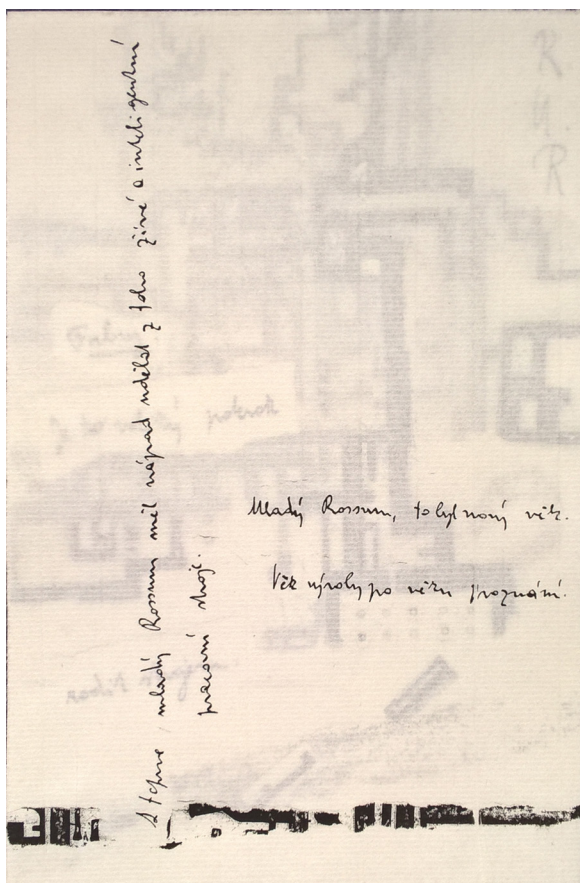 A teprve mladý Rossum měl nápad udělat z toho živé a inteligentní
pracovní stroje.
Mladý Rossum, to byl nový věk.
Věk výroby po věku poznání.
R
U.
R